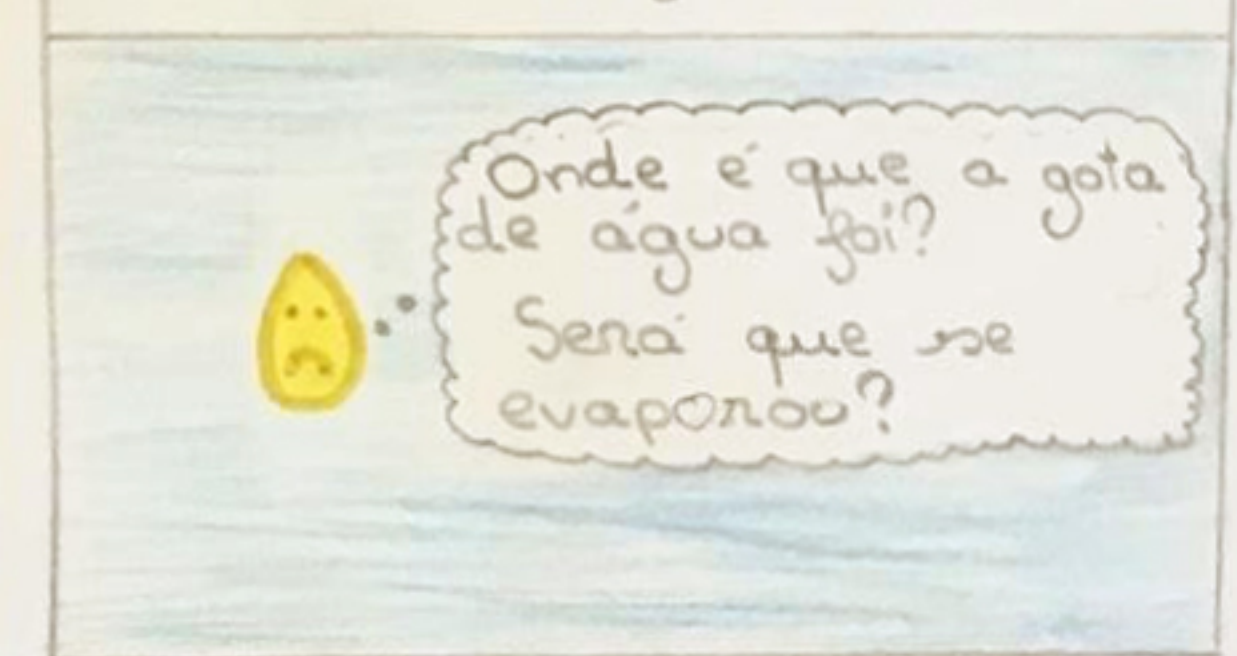 Onde é que a gota
de água foi?
Será que se
evaporou?